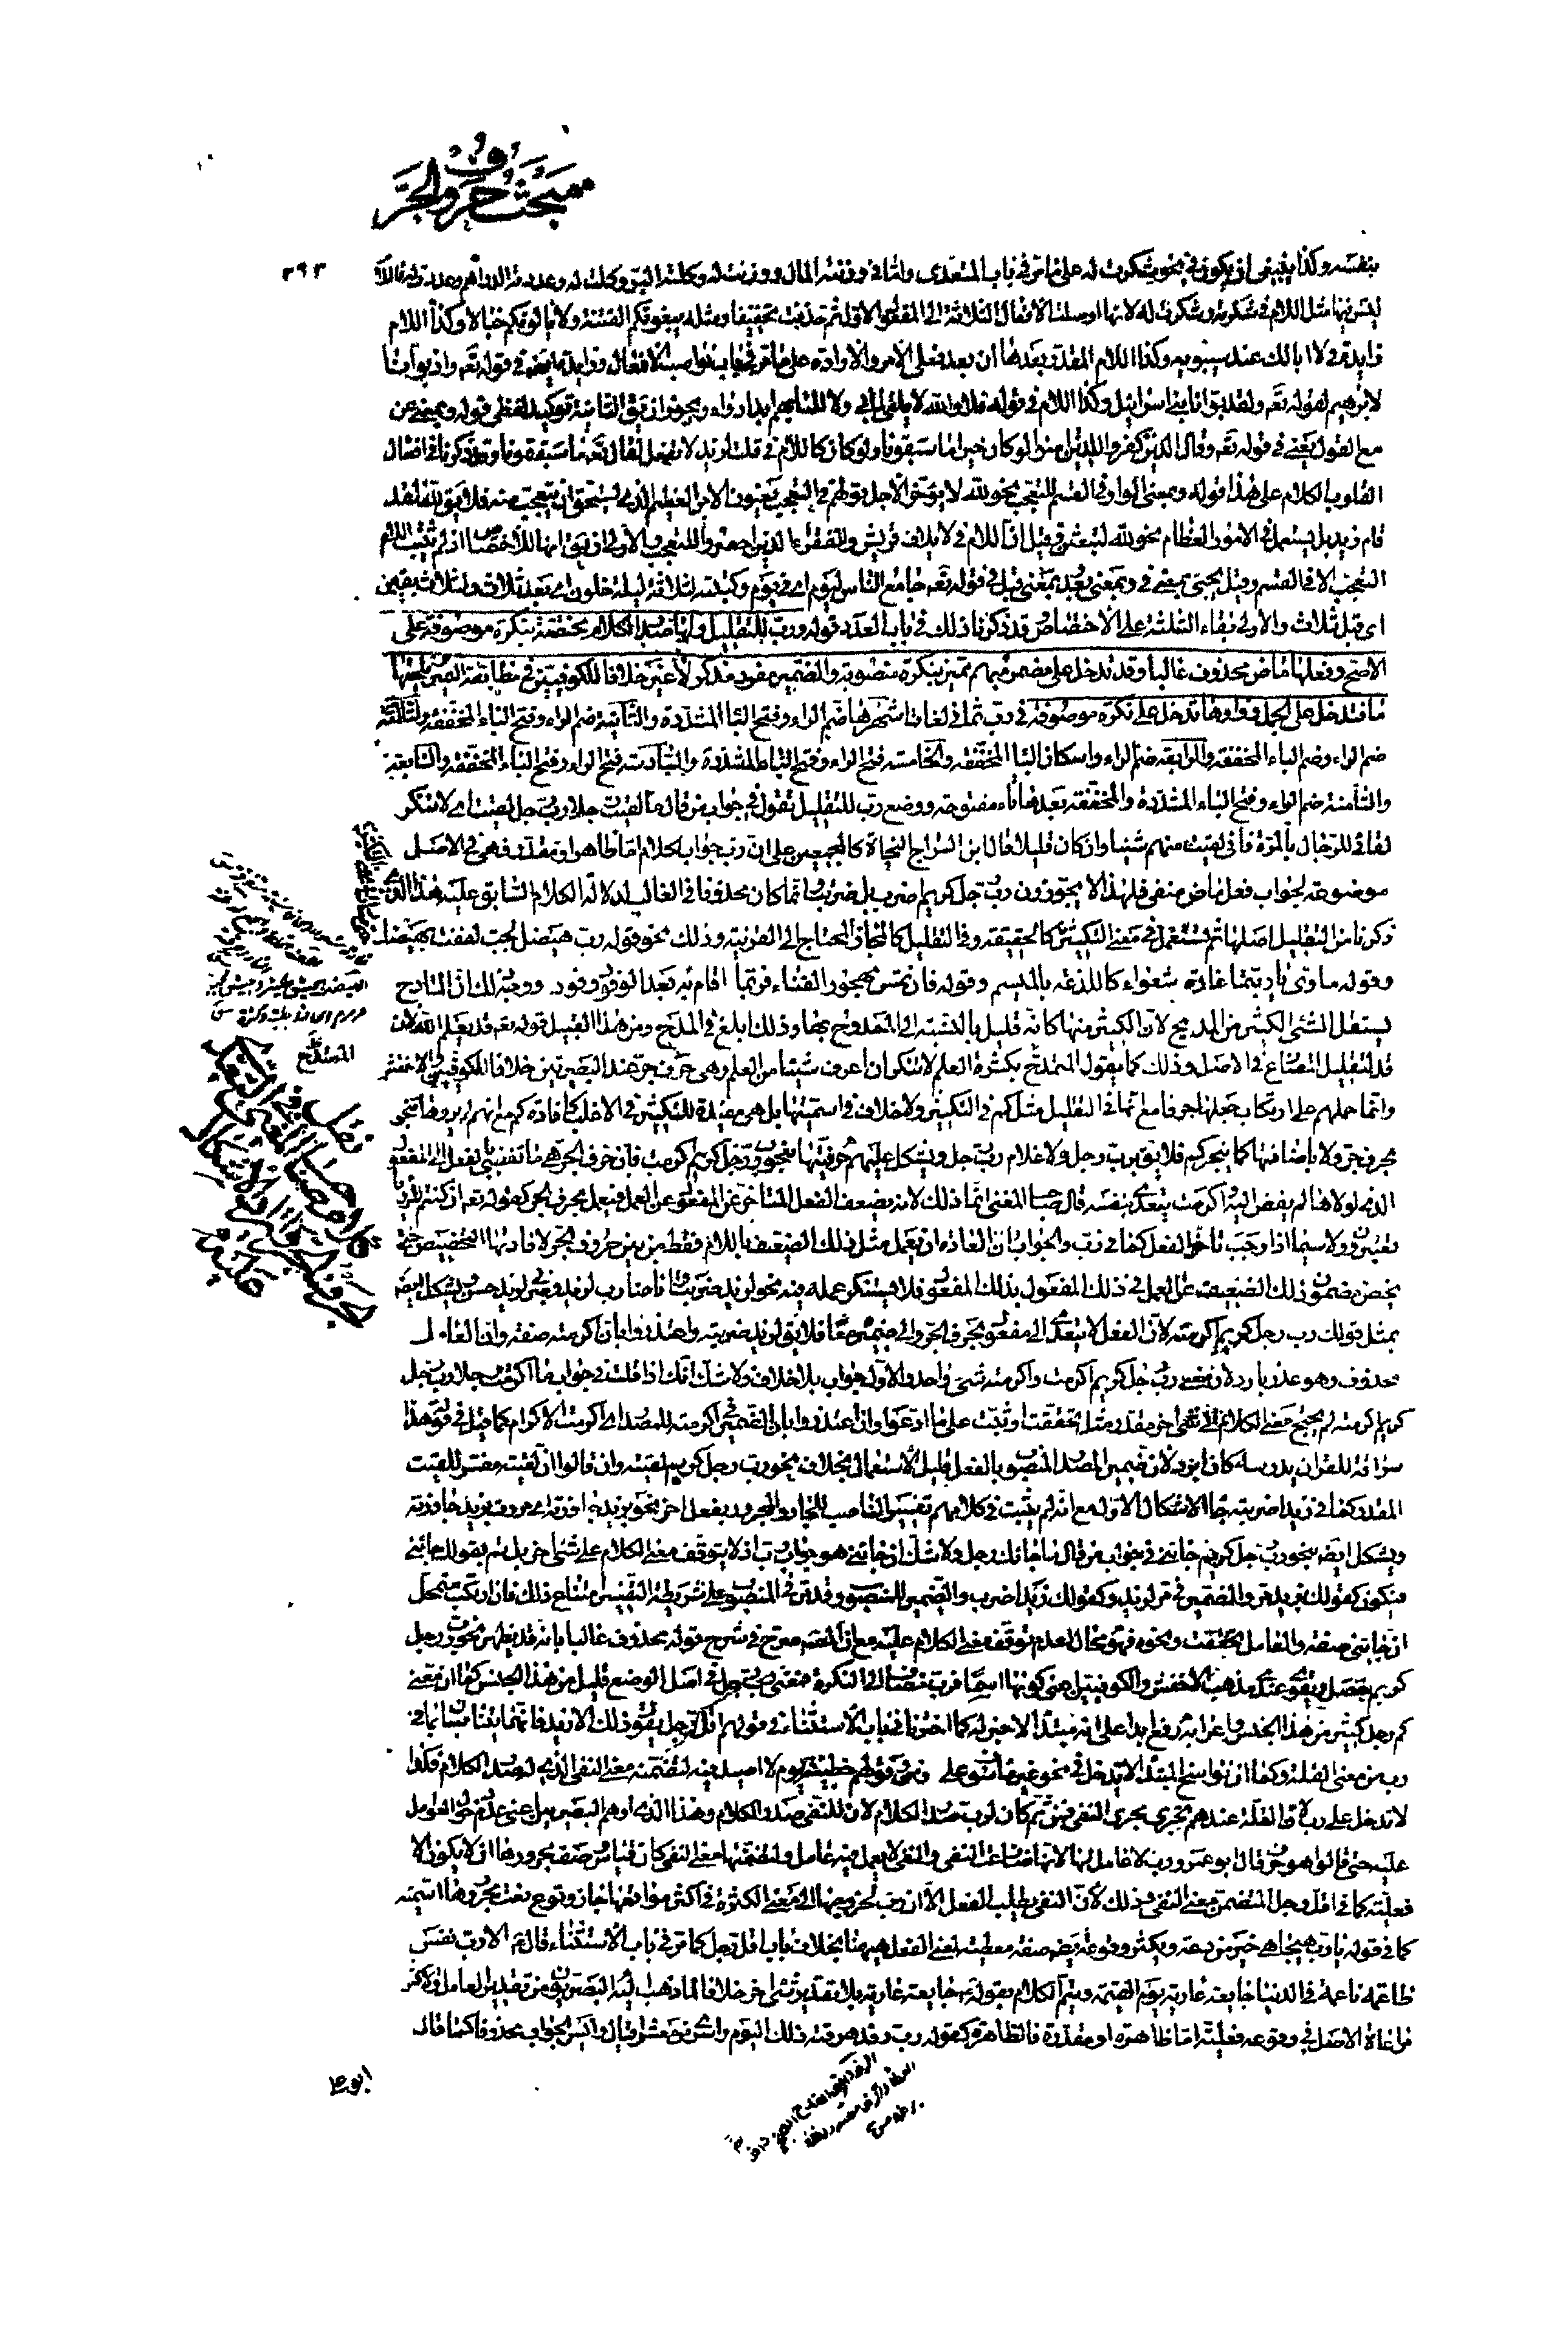 مبحث حروف الجر
٣٩٣
بنفسه وكذا ينبغي ان يكون في نحو شكرت له على ما مر في باب المتعدى واما في وزنته المال ووزنت له وكلته البر وكلت له وعددته الدراهم وعددت له فاللام
ليس فيها مثل اللام في شكرته وشكرت له لانها اوصلت الافعال الثلاثة الى المفعول الاول ثم حذفت تخفيفا ومثله يبغونكم الفتنة ولا يألونكم خبالا وكذا اللام
زايدة في لا ابا لك عند سيبويه وكذا اللام المقدر بعدها ان بعد فعلى الامر والارادة على ما مر في باب نواصب الافعال وزايدة في قوله تعه واذ بوأنا
لابرهيم لقوله تعه ولقد بوأنا بني اسرائيل وكذا اللام في قوله فلا والله لا يلفى لما بي ولا للما بهم ابدا دواء ويجوز ان يق الثانية توكيد لفظى قوله وبمعنى عن
مع القول يعني في قوله تعه وقال الذين كفروا للذين امنوا لو كان خيرا ما سبقونا ولو كان كاللام في قلت لزيد لا تفعل لقال تعه ما سبقتمونا وقد ذكرنا في افعال
القلوب الكلام على هذا قوله وبمعنى الواو في القسم للتعجب نحو لله لا يؤخر الاجل قولهم في التعجب يعنون الامر العظيم الذى يستحق ان يتعجب منه فلا يق لله لقد
قام زيد بل يستعمل في الامور العظام نحو لله لتبعثن وقيل ان اللام في لايلاف قريش وللفقراء الذين احصروا للتعجب والاولى ان يق انها للاختصاص اذ لم يثبت اللام
التعجب الا في القسم وقيل يجيئ بمعنى في وبمعنى بعد وبمعنى قبل في قوله تعه جامع الناس ليوم اى في يوم وكتبته لثلاثة ليلة خلون اى بعد ثلاث ولثلاث بقين
اى قبل ثلاث والاولى بقاء الثلثة على الاختصاص وقد ذكرنا ذلك في باب العدد قوله ورب للتقليل ولها صدر الكلام مختصة بنكرة موصوفة على
الاصح وفعلها ماض محذوف غالبا وقد تدخل على مضمر مبهم مميز بنكرة منصوبة والضمير مفرد مذكر لا غير خلافا للكوفيين في مطابقة التمييز ويلحقها
ما فتدخل على الجمل وواوها تدخل على نكرة موصوفة في رب ثماني لغات اشهرها ضم الراء وفتح الباء المشددة والثانية ضم الراء وفتح الباء المخففة والثالثة
ضم الراء وضم الباء المخففة والرابعة ضم الراء واسكان الباء المخففة والخامسة فتح الراء وفتح الباء المشددة والسادسة فتح الراء وفتح الباء المخففة والسابعة
والثامنة ضم الراء وفتح الباء المشددة والمخففة بعدها تاء مفتوحة ووضع رب للتقليل تقول في جواب من قال ما لقيت رجلا رب رجل لقيت اى لا تنكر
لقائى للرجال بالمرة فانى لقيت منهم شيئا وان كان قليلا قال ابن السراج النحاة كالمجمعين على ان رب جواب لكلام اما ظاهر او مقدر فهى في الاصل
موضوعة لجواب فعل ماض منفى فلهذا لا يجوزون رب رجل كريم ضرب بل ضربت وانما كان محذوفا في الغالب لدلالة الكلام السابق عليه هذا الذى
ذكرنا من التقليل اصلها ثم تستعمل في معنى التكثير كالحقيقة وفي التقليل كالمجاز المحتاج الى القرينة وذلك نحو قوله رب هيضل لجب لففت بهيضل
وقوله ماوى يا ربتما غارة شعواء كاللذعة بالميسم وقوله فان تمس مهجور الفناء فربما اقام به بعد الوفود وفود ووجه ذلك ان المادح
يستقل الشئ الكثير من المديح لان الكثير منها كانه قليل بالنسبة الى الممدوح بها وذلك ابلغ في المدح ومن هذا القبيل قوله تعه قد يعلم الله لان
قد لتقليل المضارع في الاصل وذلك كما يقول المتمدح بكثرة العلم لا تنكر ان اعرف شيئا من العلم وهى حرف جر عند البصريين خلافا للكوفيين والاخفش
وانما حملهم على ارتكاب جعلها حرفا مع انها في التقليل مثل كم في التكثير ولا خلاف في اسميتها بل هى مفيدة للتكثير في الاغلب كافادة كم مع انهم لم يروها تنجر
بحرف جر ولا باضافتها كما ينجر كم فلا يق برب رجل ولا غلام رب رجل ويشكل عليهم حرفيتها بنحو رب رجل كريم اكرمت فان حرف الجر هى ما تفضى بفعل الى المفعول
الذى لولاها لم يفض اليه واكرمت يتعدى بنفسه قال صاحب المغنى انما ذلك لانه يضعف الفعل المتاخر عن المفعول عن العمل فيعمل بحرف الجر كقوله تعه ان كنتم للرؤيا
تعبرون ولا سيما اذا وجب تاخير الفعل كما في رب والجواب ان العادة ان يعمل مثل ذلك الضعيف باللام فقط من بين حروف الجر لافادتها التخصيص حتى
يخص مضمون ذلك الضعيف عن العمل في ذلك المفعول بذلك المفعول فلا يستنكر عمله فيه نحو لزيد ضربت وانا ضارب لزيد وضربى لزيد حسن ويشكل ايضه
بمثل قولك رب رجل كريم اكرمته لان الفعل لا يتعدى الى مفعول بحرف الجر والى ضميره معا فلا يق لزيد ضربته واعتذروا بان اكرمته صفته وان العامل
محذوف وهو عذر بارد لان معنى رب رجل كريم اكرمت واكرمته شئ واحد والاول جواب بلا خلاف ولا شك انك اذا قلت في جواب ما اكرمت رجلا رب رجل
كريم اكرمته لم يحتج معنى الكلام الى شئ اخر مقدر مثل تحققت او ثبتت على ما ادعوا وان اعتذروا بان الضمير في اكرمته للمصدر اى اكرمت الاكرام كما قيل في قوله هذا
سراقة للقران يدرسه كان ابرد لان ضمير المصدر المنصوب بالفعل قليل الاستعمال بخلاف نحو رب رجل كريم لقيته وان قالوا ان لقيته مفسر للقيت
المقدر كما في زيدا ضربته جاء الاشكال الاول مع انه لم يثبت في كلامهم تفسير الناصب للجار والمجرور بفعل اخر نحو بزيد جاوزته اى مررت بزيد جاوزته
ويشكل ايضه بنحو رب رجل كريم جاءنى في جواب من قال ما جاءك رجل ولا شك ان جاءنى هو جواب رب اذ لا يتوقف معنى الكلام على شئ اخر بل لم يقولوا جاءنى
فيكون كقولك بزيد مر والضمير في مر لزيد وكقولك زيدا ضرب والضمير للمنصوب وقد مر في المنصوب على شريطة التفسير امتناع ذلك فان ارتكب متمحل
ان جاءنى صفته والعامل تحققت ونحوه فهو محال لعدم توقف معنى الكلام عليه مع ان المصنف صرح في شرح قوله محذوف غالبا بانه قد يظهر نحو رب رجل
كريم حصل ويقوى عندى مذهب الاخفش والكوفيين اعنى كونها اسما فرب مضاف الى النكرة فمعنى رب رجل في اصل الوضع قليل من هذا الجنس كما ان معنى
كم رجل كثير من هذا الجنس واعرابه رفع ابدا على انه مبتدأ لا خبر له كما اخترنا في باب الاستثناء في قولهم اقل رجل يقول ذلك الا زيد فانهما يتناسبان بما في
رب من معنى القلة وكما ان نواسخ المبتدأ لا تدخل في نحو غير مأسوف على زمن وقولهم خطيئة يوم لا اصيد فيه لتضمنه معنى النفى الذى له صدر الكلام فكذا
لا تدخل على رب فالقلة عندهم تجرى مجرى النفى فمن ثم كان لرب صدر الكلام لان للنفى صدر الكلام وهذا الذى اوهم البصريين اعنى عدم دخول العوامل
عليه حتى قالوا هو حرف قال ابو عمرو رب لا عامل لها لانها ضارعت النفى والنفى لا يعمل فيه عامل ولتضمنها معنى النفى كان قياس صفة مجرورها ان لا يكون الا
فعلية كما في اقل رجل المتضمن معنى النفى وذلك لان النفى يطلب الفعل الا ان رب لخروجها الى معنى الكثرة في اكثر مواقعها جاز وقوع نعت مجرورها اسمية
كما في قوله يا رب هيجا هى خير من دعة ويكثر وقوعه ايضه صفة معطية لمعنى الفعل ههنا بخلاف باب اقل رجل كما مر في باب الاستثناء قال عم الا رب نفس
طاعمة ناعمة في الدنيا جايعة عارية يوم القيمة ويتم الكلام بقوله جايعة عارية بلا تقدير شئ اخر خلافا لما ذهب اليه البصريون من تقدير العامل والاكثر
مراعاة الاصل في وقوعه فعلية اما ظاهرة او مقدرة فالظاهرة كقوله رب رفد هرقته ذلك اليوم واسرى من معشر اقيال وليس الجواب محذوفا كما قال
ابو على